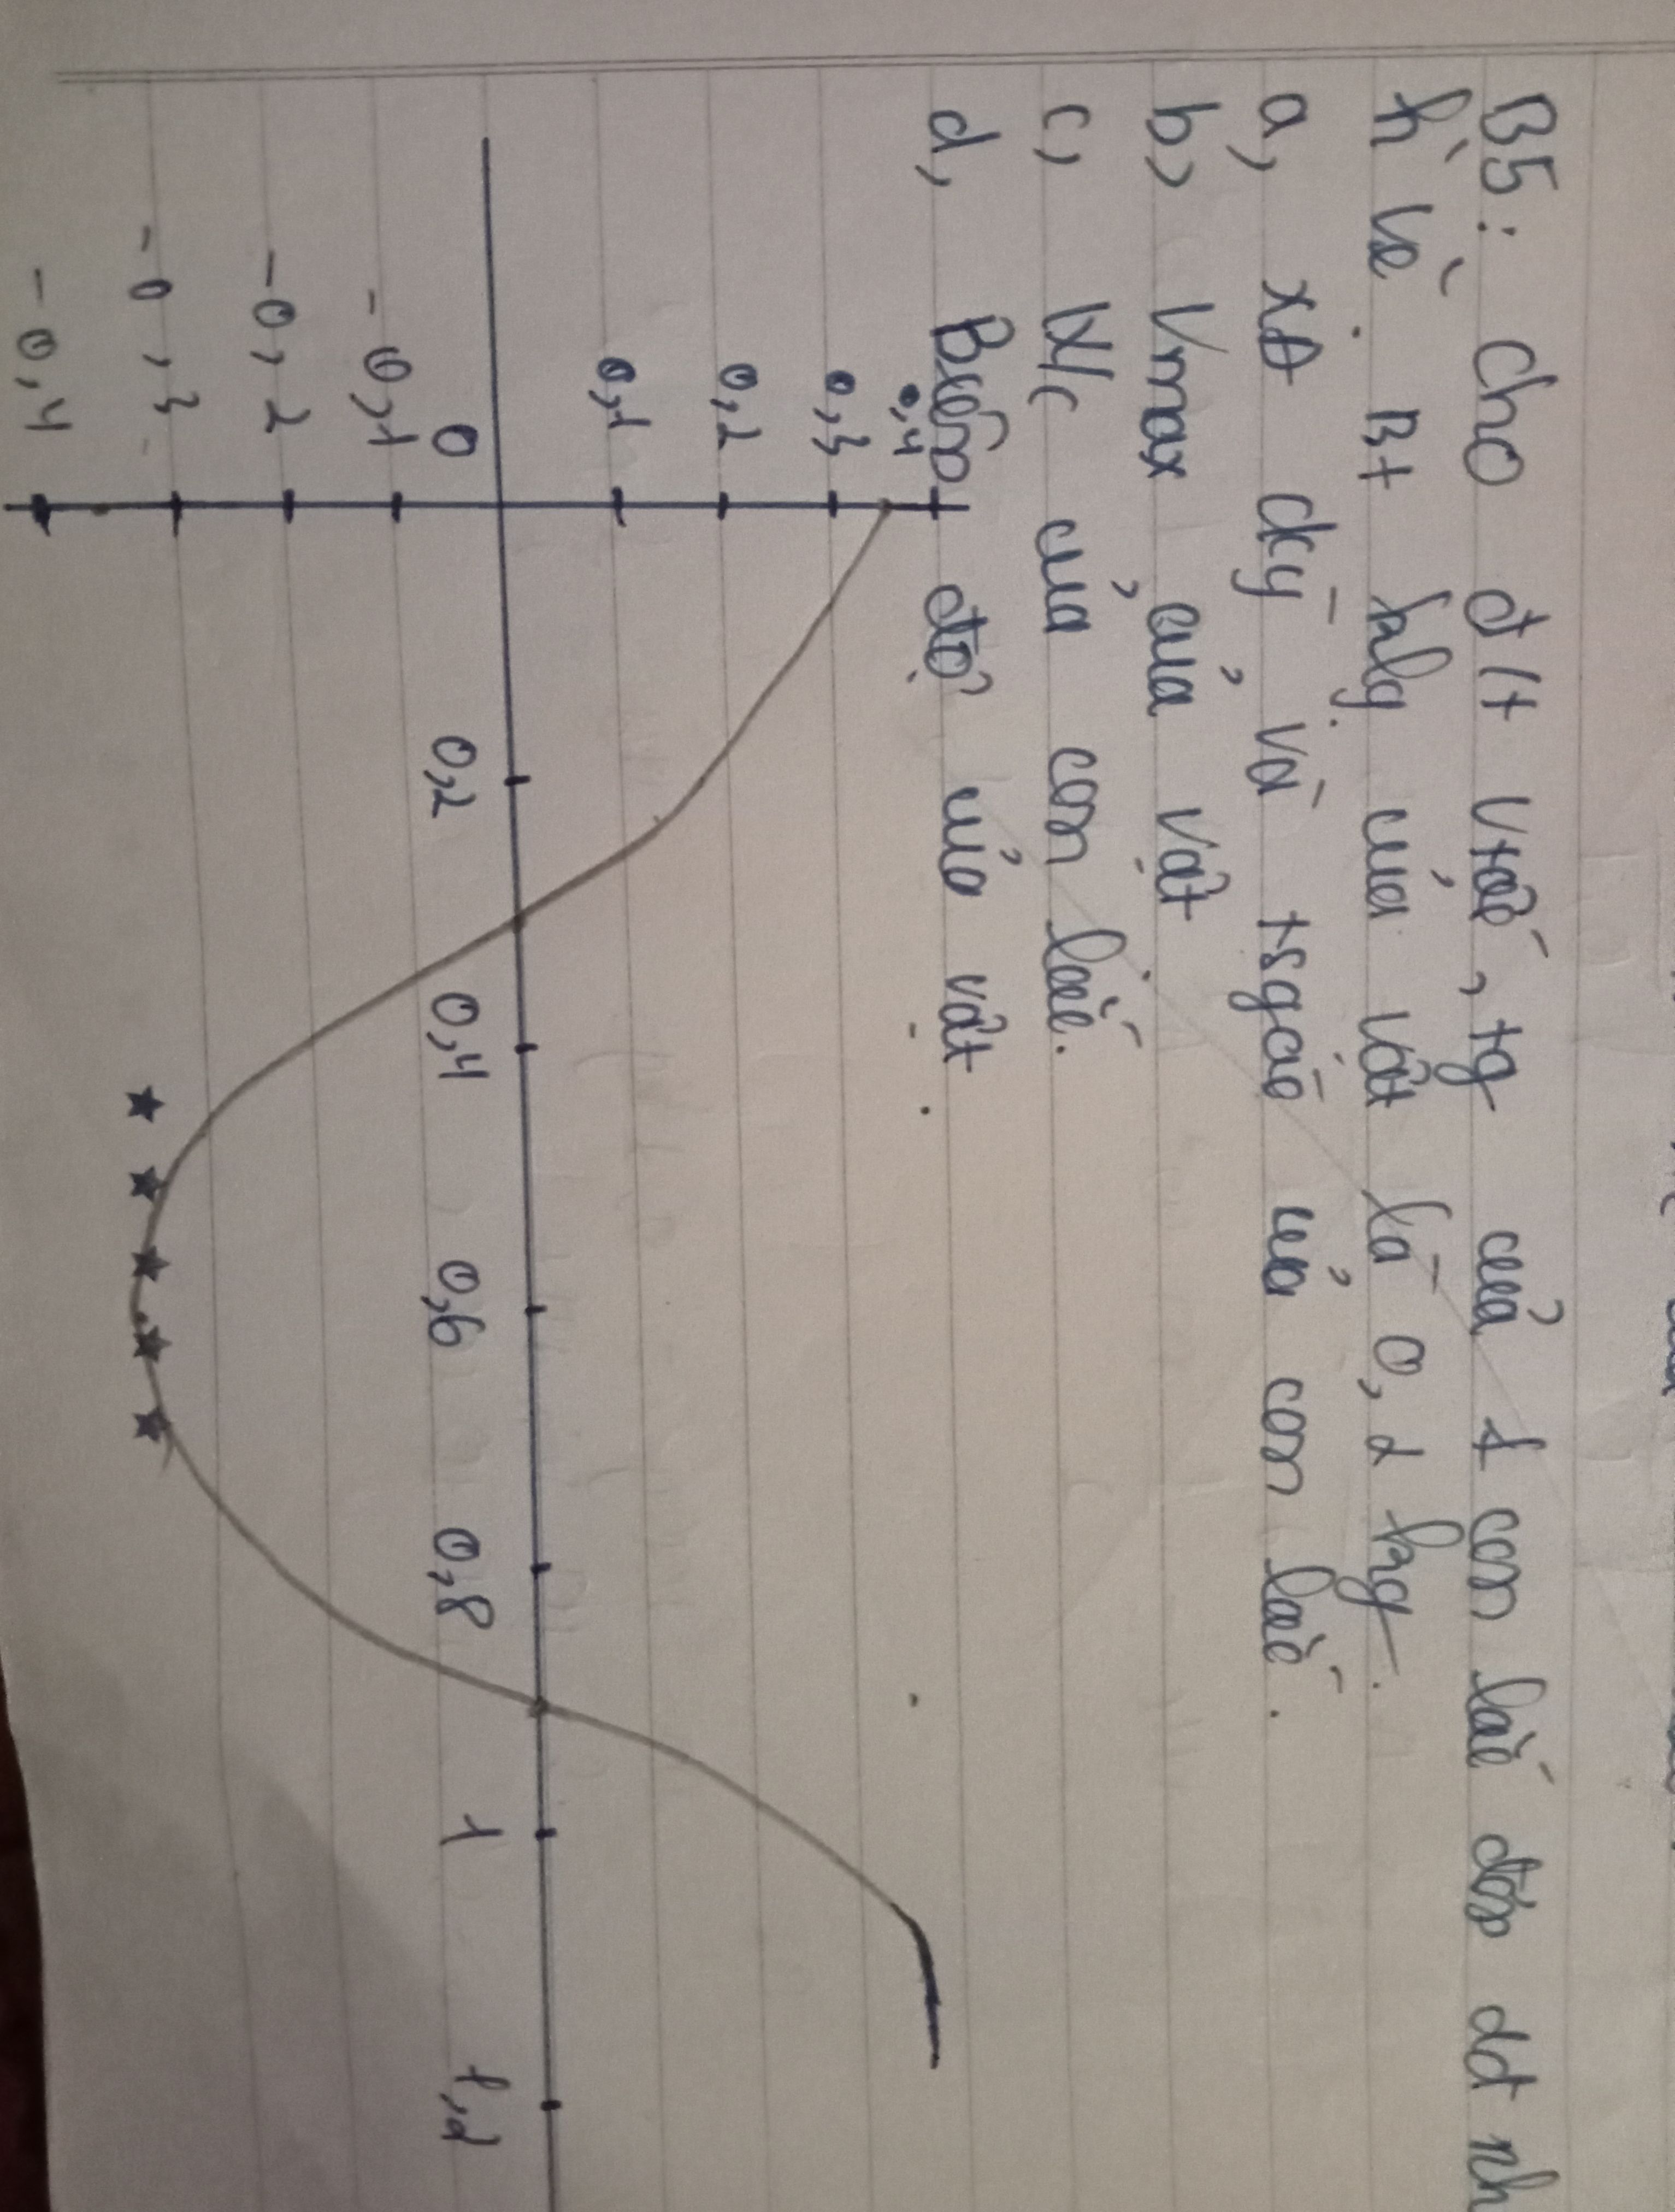 B5: Cho đ/t vtốc, tg của 1 con lắc đơn dđ nh
h vẽ. Bt klg của vật là 0,2 kg.
a, xđ cky và tsgóc của con lắc.
b, Vmax của vật
c, W/c của con lắc.
d, Biên độ của vật
0,4
0,3
0,2
0,1
0
0,2
0,4
0,6
0,8
1
1,2
-0,1
-0,2
-0,3
-0,4